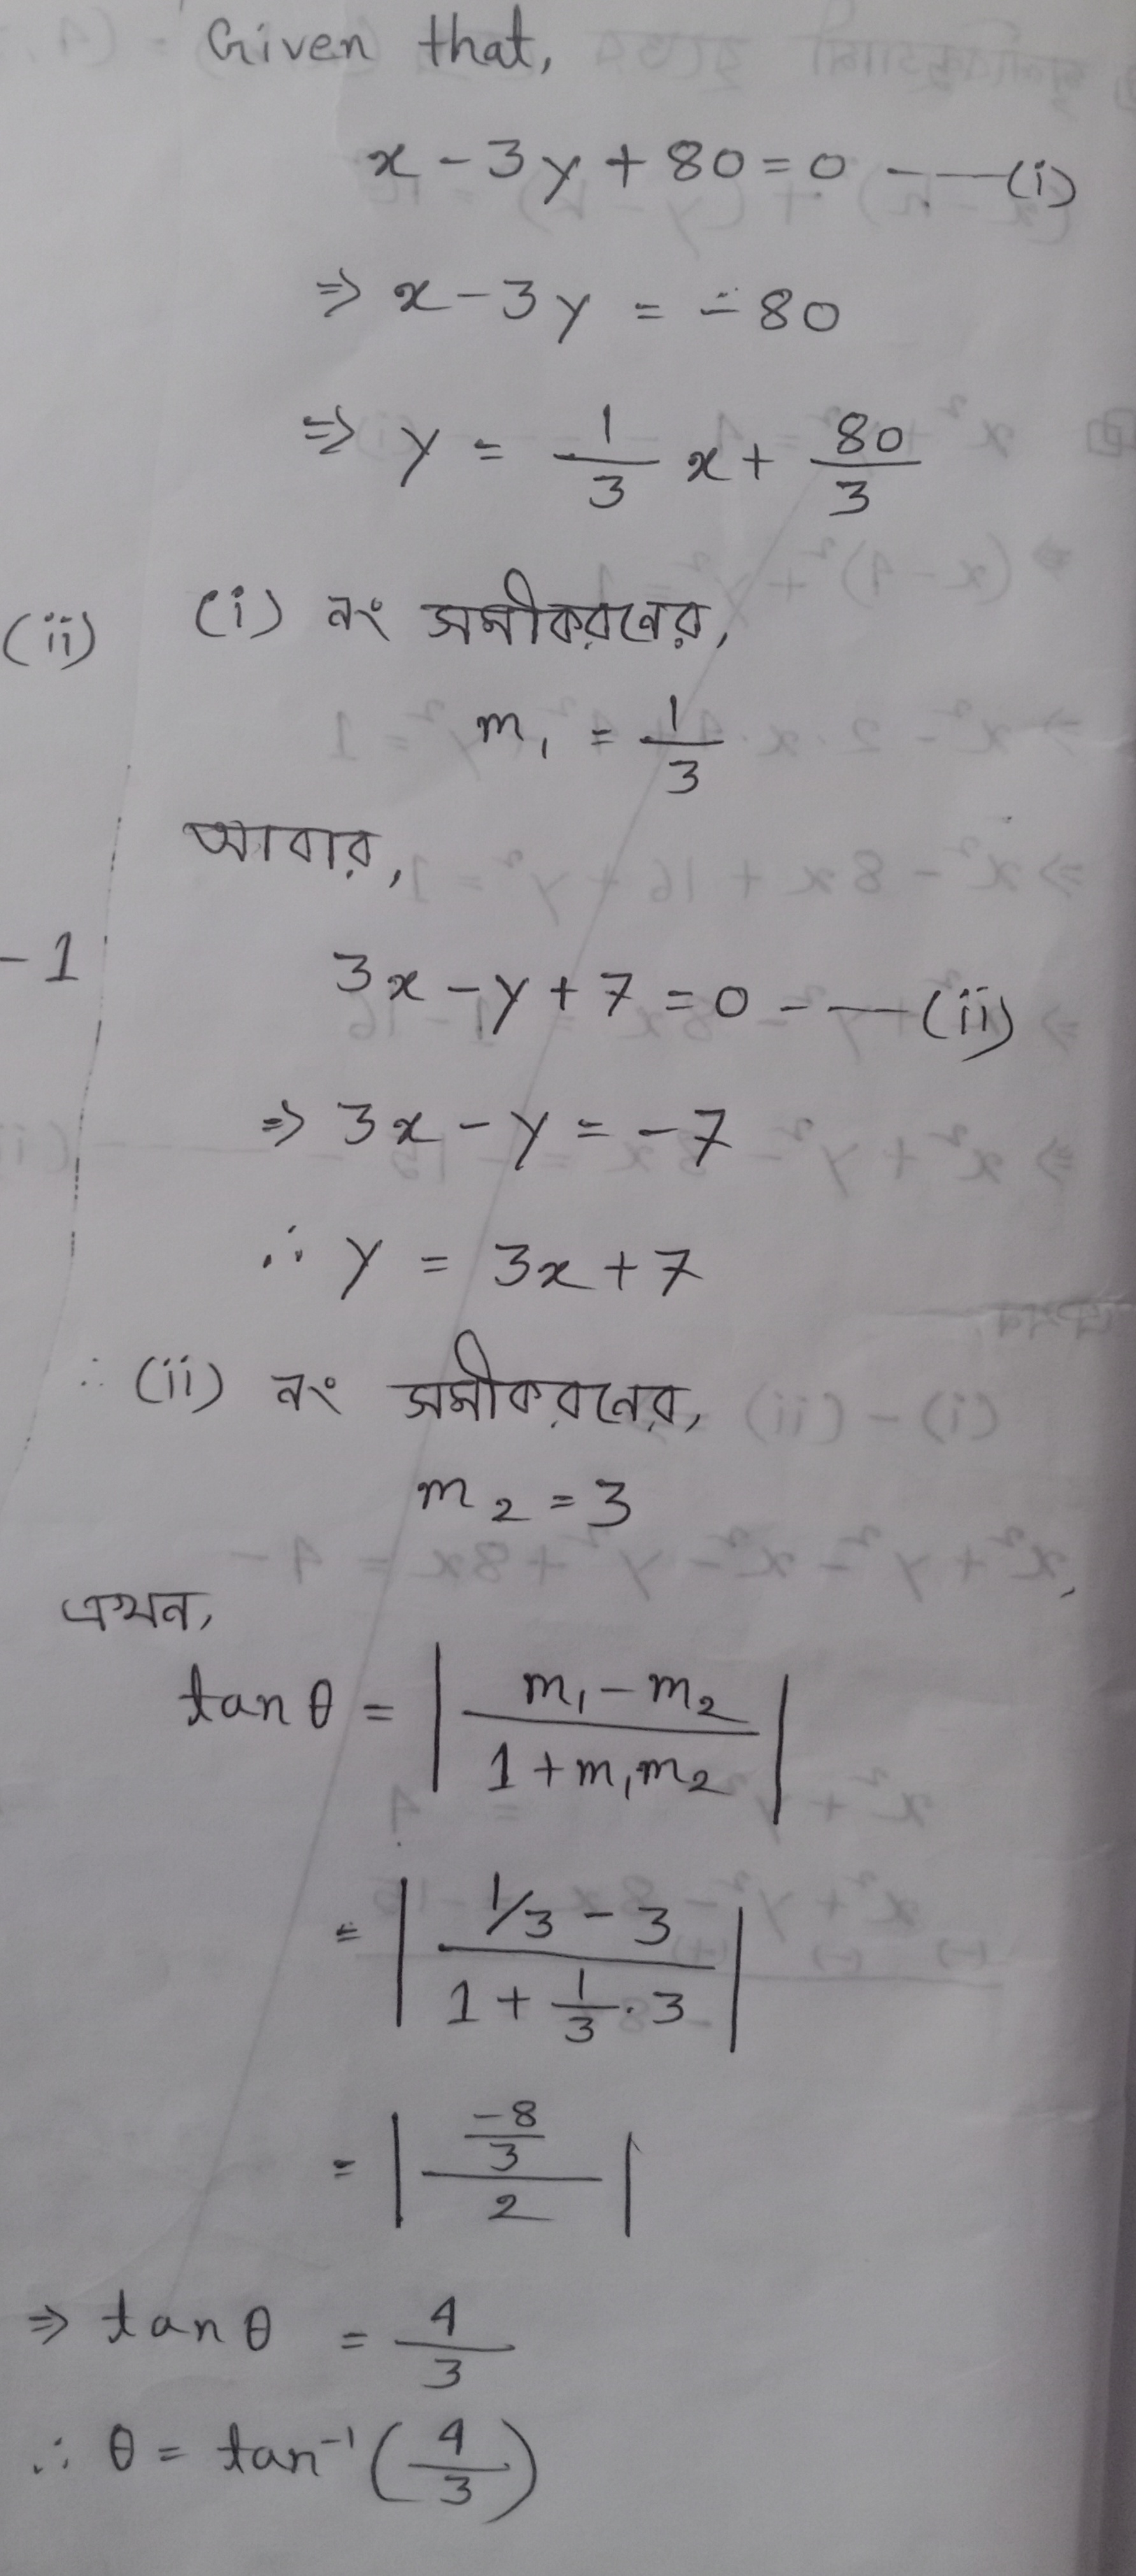 Given that,
x - 3y + 80 = 0 --- (i)
⇒ x - 3y = -80
⇒ y = 1/3 x + 80/3
(ii) (i) নং সমীকরনের,
m₁ = 1/3
আবার,
-1
3x - y + 7 = 0 --- (ii)
⇒ 3x - y = -7
∴ y = 3x + 7
∴ (ii) নং সমীকরনের,
m₂ = 3
এখন,
tan θ = | (m₁ - m₂) / (1 + m₁m₂) |
= | (1/3 - 3) / (1 + 1/3 · 3) |
= | (-8/3) / 2 |
⇒ tan θ = 4/3
∴ θ = tan⁻¹ (4/3)